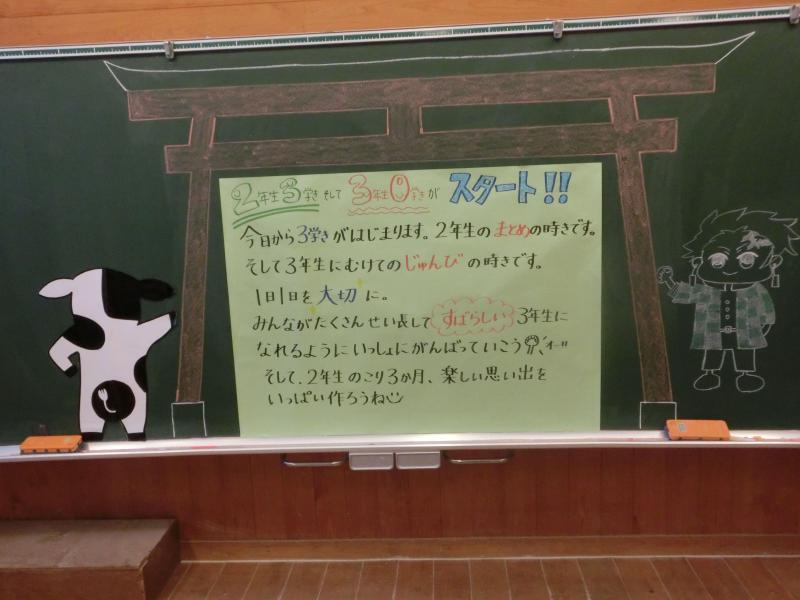 2年生3学きそして3年生0学きがスタート!!
今日から3学きがはじまります。2年生のまとめの時きです。
そして3年生にむけてのじゅんびの時きです。
1日1日を大切に。
みんながたくさんせい長してすばらしい3年生に
なれるようにいっしょにがんばっていこう
そして、2年生のこり3か月、楽しい思い出を
いっぱい作ろうね